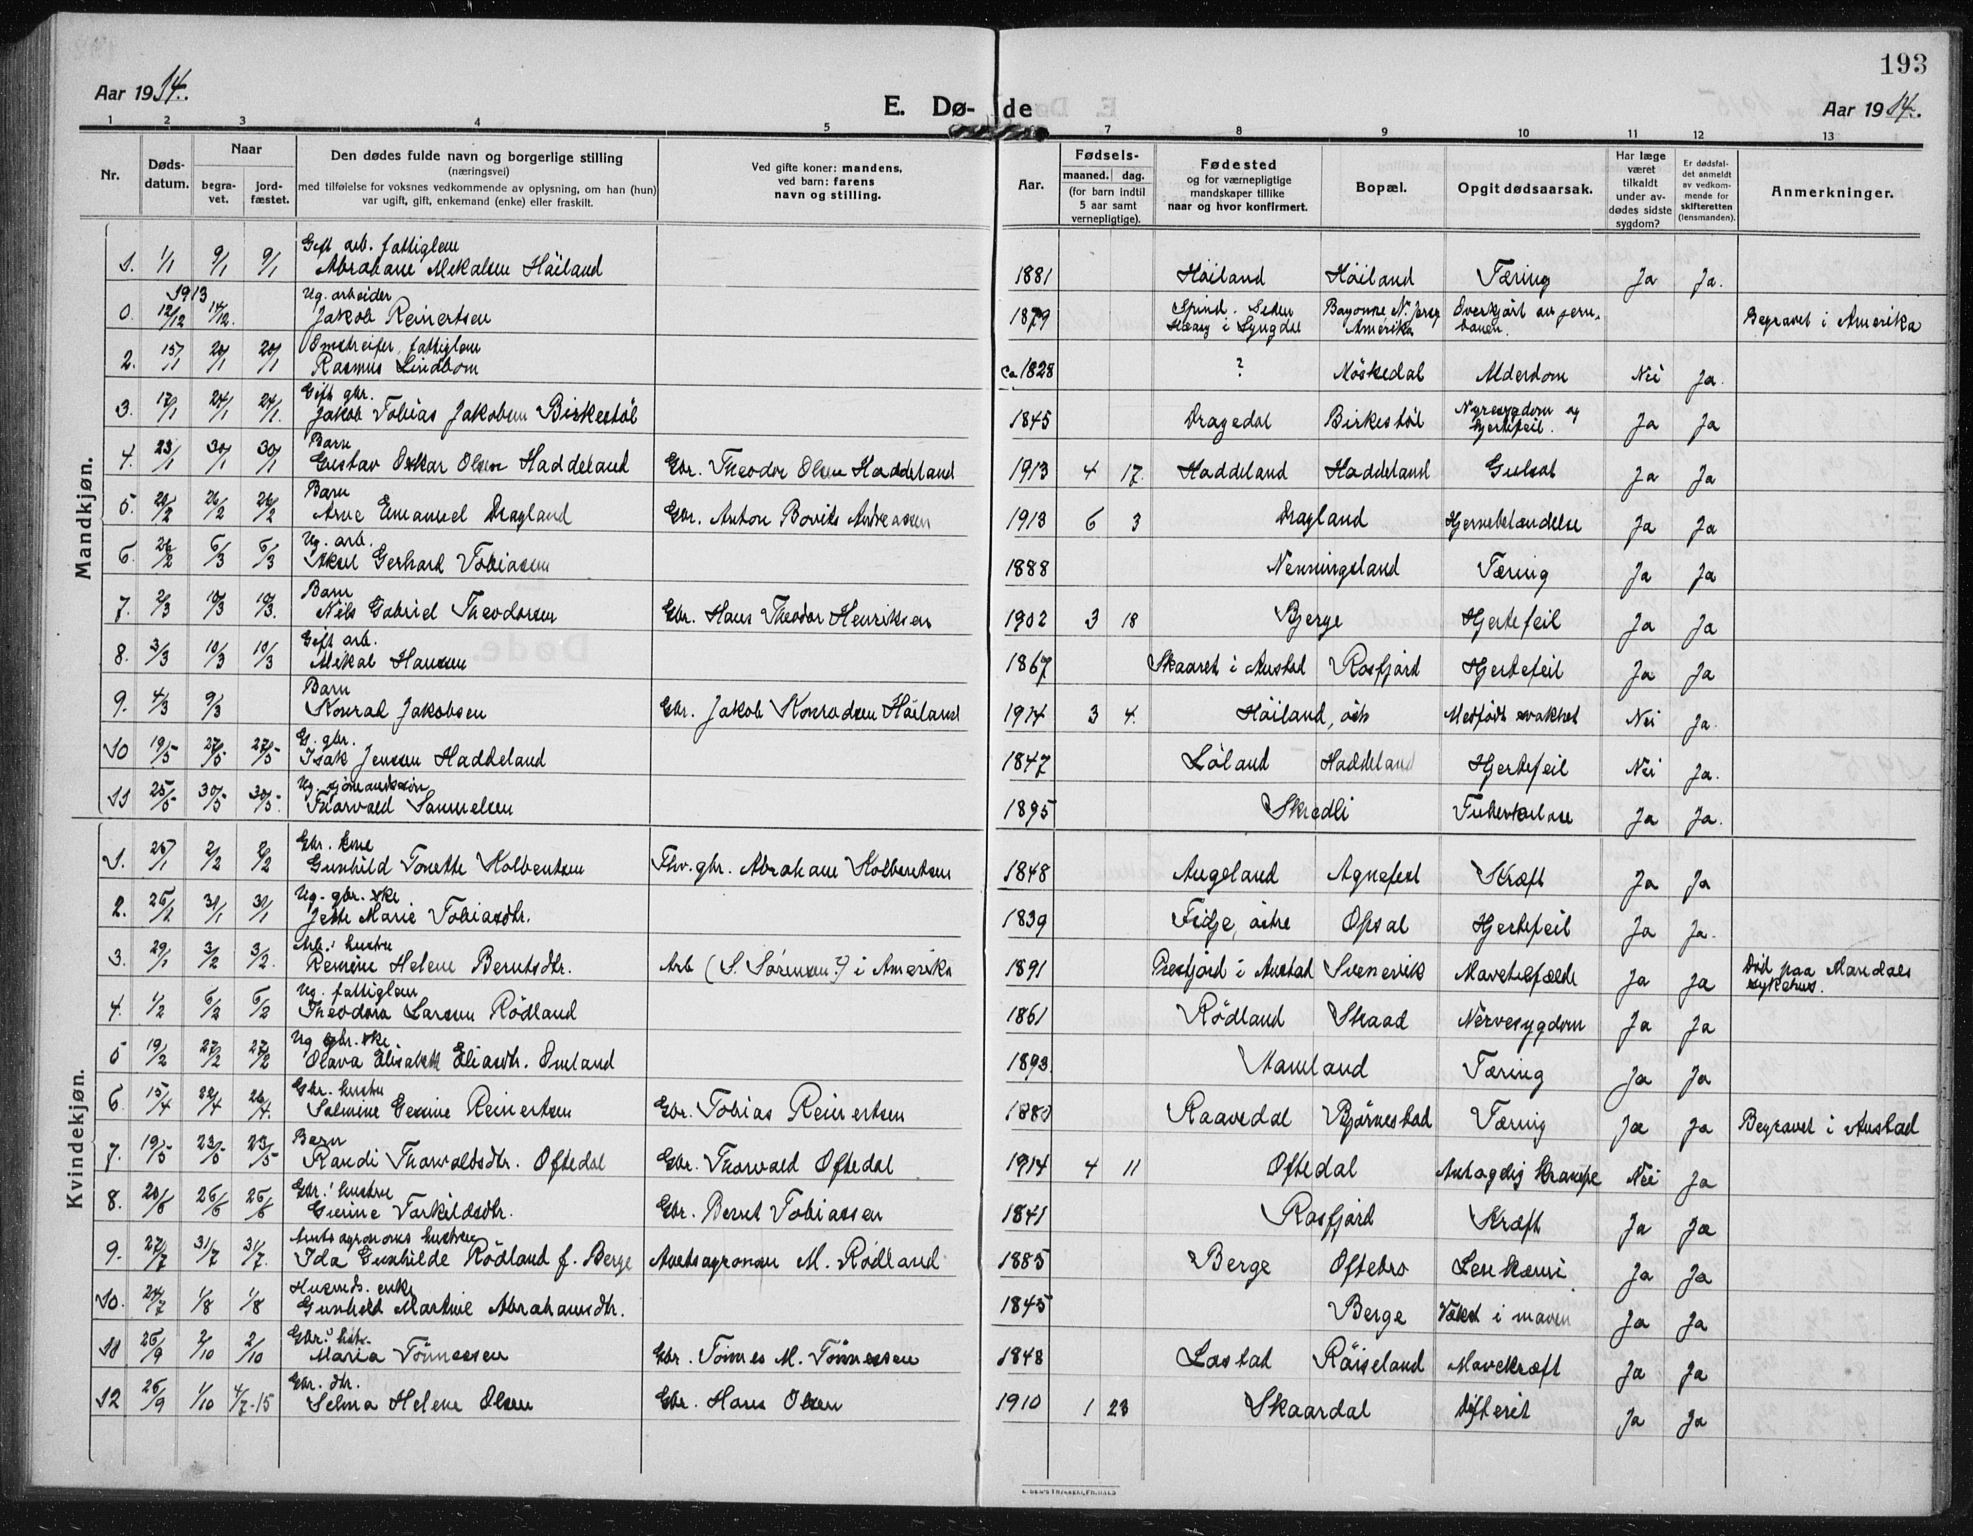 193
Aar 1914.
E. Dø-de
Aar 1914.
1 2 3 4 5 7 8 9 10 11 12 13
Nr.
Døds-datum.
Naar
begra-vet.
jord-fæstet.
Den dødes fulde navn og borgerlige stilling
(næringsvei)
med tilføielse for voksnes vedkommende av oplysning, om han (hun)
var ugift, gift, enkemand (enke) eller fraskilt.
Ved gifte koner: mandens,
ved barn: farens
navn og stilling.
Aar.
Fødsels-
maaned. dag.
(for barn indtil
5 aar samt
vernepligtige).
Fødested
og for værnepligtige
mandskaper tillike
naar og hvor konfirmert.
Bopæl.
Opgit dødsaarsak.
Har læge
været
tilkaldt
under av-
dødes sidste
sygdom?
Er dødsfal-
det anmeldt
av vedkom-
mende for
skifteretten
(lensmanden).
Anmerkninger.
Mandkjøn.
Gift arb. fattiglem
1. 1/1 9/1 9/1 Abraham Mekalsen Høiland 1881 Høiland Høiland Tæring Ja Ja.
1913 Ug. arbeider
0. 12/12 14/12. Jakob Reinertsen 1879 Spind. Siden Hæaag i Lyngdal Bayonne N. Jersy Amerika Overkjørt av jern-banen. Begravet i Amerika
Omstreifer, fattiglem
2. 15/1 20/1 20/1 Rasmus Lindbom ca 1828 ? Møskedal Alderdom Nei Ja.
Gift gbr.
3. 17/1 24/1 24/1. Jakob Tobias Jakobsen Birkestøl 1845 Dragedal Birkestøl Nyresygdom og Hjertefeil. Ja Ja
Barn
4. 23/1 30/1 30/1 Gustav Oskar Olsen Haddeland Gbr. Theodor Olsen Haddeland 1913 4 17. Haddeland Haddeland Gulsot Ja Ja
Barn
5. 20/2 26/2 26/2 Arne Emanuel Dragland Gbr. Anton Bovits Andreassen 1913 6 3 Dragland Hjernebetændelse Ja Ja
Ug. arb.
6. 26/2 6/3 6/3 Aksel Gerhard Tobiassen 1888 Nenningsland Tæring Ja Ja
Barn
7. 2/3 10/3 10/3. Nils Gabriel Theodorsen Gbr. Hans Theodor Henriksen 1902 3 18 Bjerge Hjertefeil Ja Ja
Gift arb.
8. 3/3 10/3 10/3 Mikal Hansen 1867 Skaaret i Austad Rosfjord Hjertefeil Ja Ja
Barn
9. 4/3 9/3 Konrad Jakobsen Gbr. Jakob Konradsen Høiland 1914 3 4. Høiland, øst. Medfødt svakhet Nei Ja.
G. gbr.
10 19/5 27/5 27/5 Isak Jensen Haddeland 1847 Løland Haddeland Hjertefeil Nei Ja.
Ug. sjømandssøn
11 25/5 30/5 30/5. Thorvald Samuelsen 1895 Skredli Tuberkulose Ja Ja.
Kvindekjøn.
Gbr. kone
1. 25/1 2/2 2/2 Gunhild Tonette Kolbentsen Fhv. gbr. Abraham Kolbentsen 1848 Augeland Agnefest Kræft Ja Ja
Ug. gbr. ske
2. 31/1 31/1 Jette Marie Tobiasdtr. 1839 Fidje, østre Opsal Hjertefeil Ja Ja.
Arb.' hustru
3. 29/1 3/2 3/2. Reinine Helene Berntsdtr. Arb (S. Sørensen?) i Amerika 1891 Presfjord i Austad Svenevik Mavetilfælde Ja Ja Død paa Mandals sykehus.
Ug. fattiglem
4. 1/2 6/2 6/2 Theodora Larsen Rødland 1861 Rødland Skaad Nervesygdom Ja Ja
Ug gbr. ske.
5 19/2 27/2 27/2 Olava Elisabeth Eliasdtr. Omland 1893. Aamland Tæring Ja Ja
Gbr. hustru
6. 15/4 22/4 26/4. Salmine Gesine Reinertsen Gbr. Tobias Reinertsen 1880 Raavedal Bjørnestad Tæring Ja Ja Begravet i Austad
Barn
7. 19/5 23/5 23/5 Randi Thorvaldsdtr. Oftedal Gbr. Thorvald Oftedal 1914 4 11 Oftedal Antagelig Krampe Nei Ja
Gbr.' hustru
8. 20/6 26/6 26/6 Gurine Torkildsdtr. Gbr. Bernt Tobiassen 1841 Rosfjord Kræft Ja Ja
Amtsagronoms hustru
9. 27/7 31/7 31/7. Ida Gunhilde Rødland f. Berge Amtsagronom M. Rødland 1885 Berge Oftebro Leukæmi Ja Ja
Husmds. enke
10. 24/7 1/8 1/8 Gunhild Martine Abrahamsdtr. 1845 Berge Vækst i maven Ja Ja
Gbr.' hst.
11 25/9 2/10 2/10 Maria Tønnessen Gbr. Tønnes M. Tønnessen 1848 Lastad Røiseland Mavekræft Ja Ja
Gbr. dtr.
12 26/9 1/10 4/7-15 Selma Helene Olsen Gbr. Hans Olsen 1910 1 23 Skaardal Difterit Ja Ja